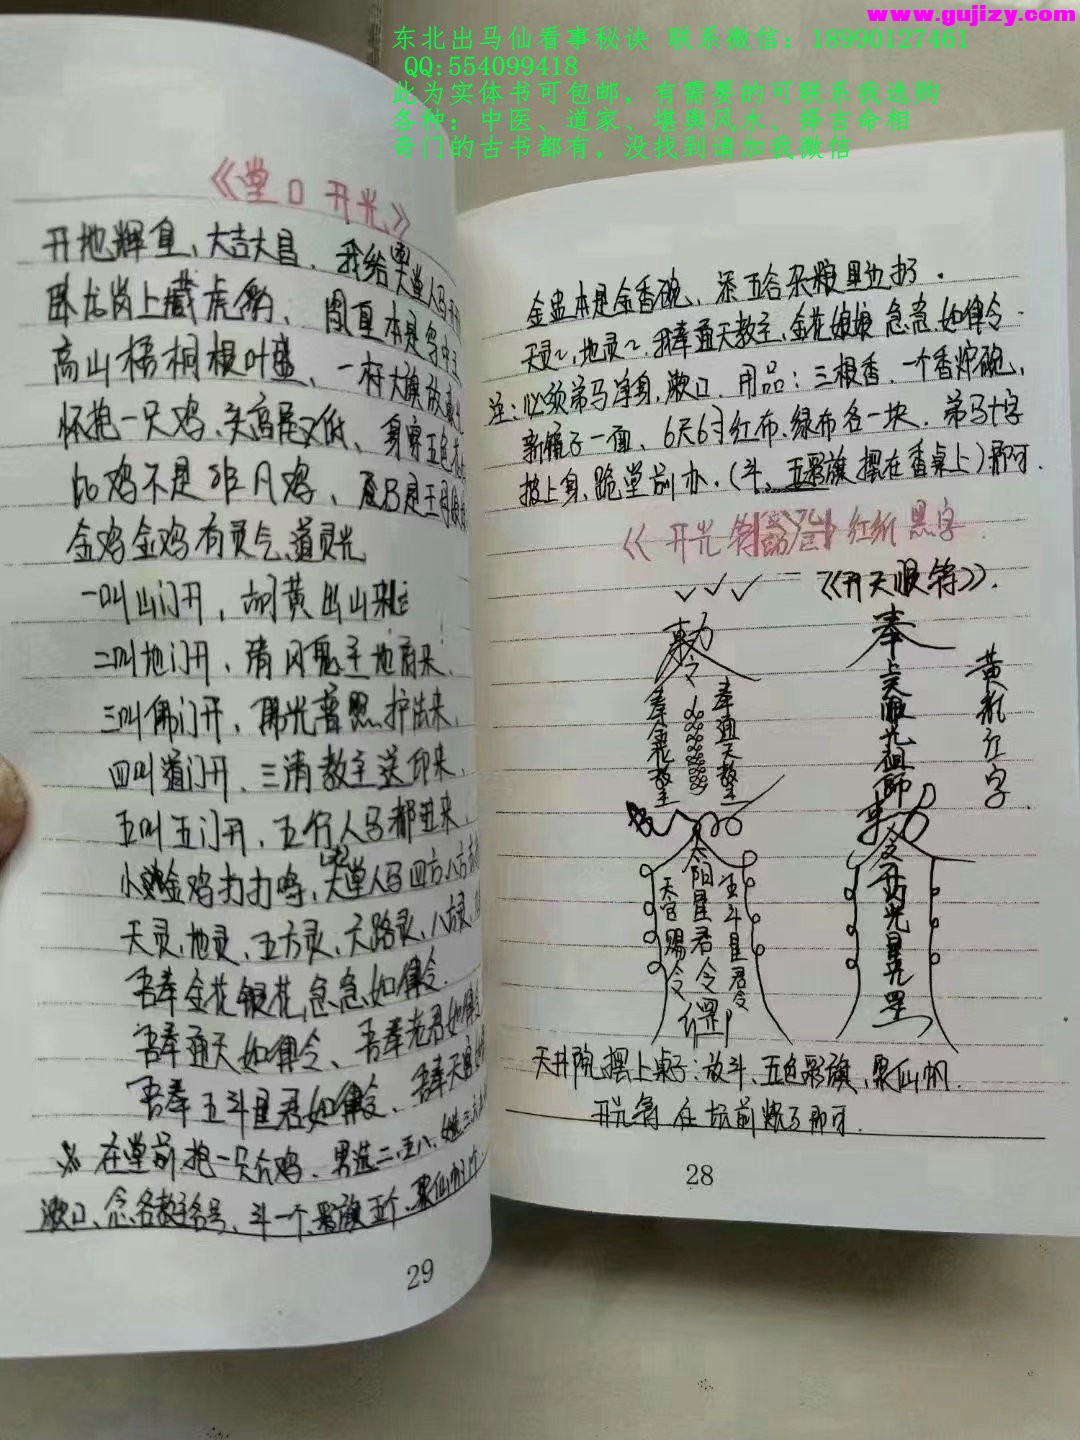 www.gujizy.com
东北出马仙看事秘诀 联系微信：18990127461
QQ:554099418
此为实体书可包邮，有需要的可联系我选购
各种：中医、道家、堪舆风水、择吉命相
奇门的古书都有，没找到请加我微信
《堂口开光》
开地辉皇、大吉大昌、我给 堂人马开
卧龙岗上藏虎豹、凰本是鸟中王
高山梧桐根叶盛、一杆大旗放
怀抱一只鸡、头高尾又低、身穿五色
此鸡不是非凡鸡、是王母娘
金鸡金鸡有灵气、道灵光
一叫山门开，胡黄出山来
二叫地门开，清风鬼主地府来、
三叫佛门开，佛光普照护法来、
四叫道门开、三清教主送印来、
五叫五门开，五行人马都进来、
小金鸡打打鸣，堂人马四方八方
天灵，地灵，五方灵，六路灵，八方灵
吾奉金花银花，急急如律令.
吾奉通天如律令、吾奉老君如律令
吾奉五斗星君如律令、吾奉天官
※在堂前抱一只公鸡、男选二·五八、女选三六
漱口、念各教主名号、斗一个、彩旗五个、聚仙帆
29
金盅本是金香碗、添五谷杂粮里边扔.
天灵~，地灵~.我奉通天教主、金花娘娘急急如律令.
注：必须弟马净身，漱口.用品：三根香.一个香炉碗、
新镜子一面、6尺6寸红布、绿布各一块.弟马十字
披上身、跪堂前办.（斗、五彩旗摆在香桌上）即可.
《开光符 》红纸黑字.
《开天眼符》.
敕令
奉通天教主
太阳星君令
五斗星君令
天官赐令
罡
奉
敕令开
黄纸红字
天井院，摆上桌子：放斗、五色彩旗、聚仙帆.
开光符在坛前烧了即可.
28